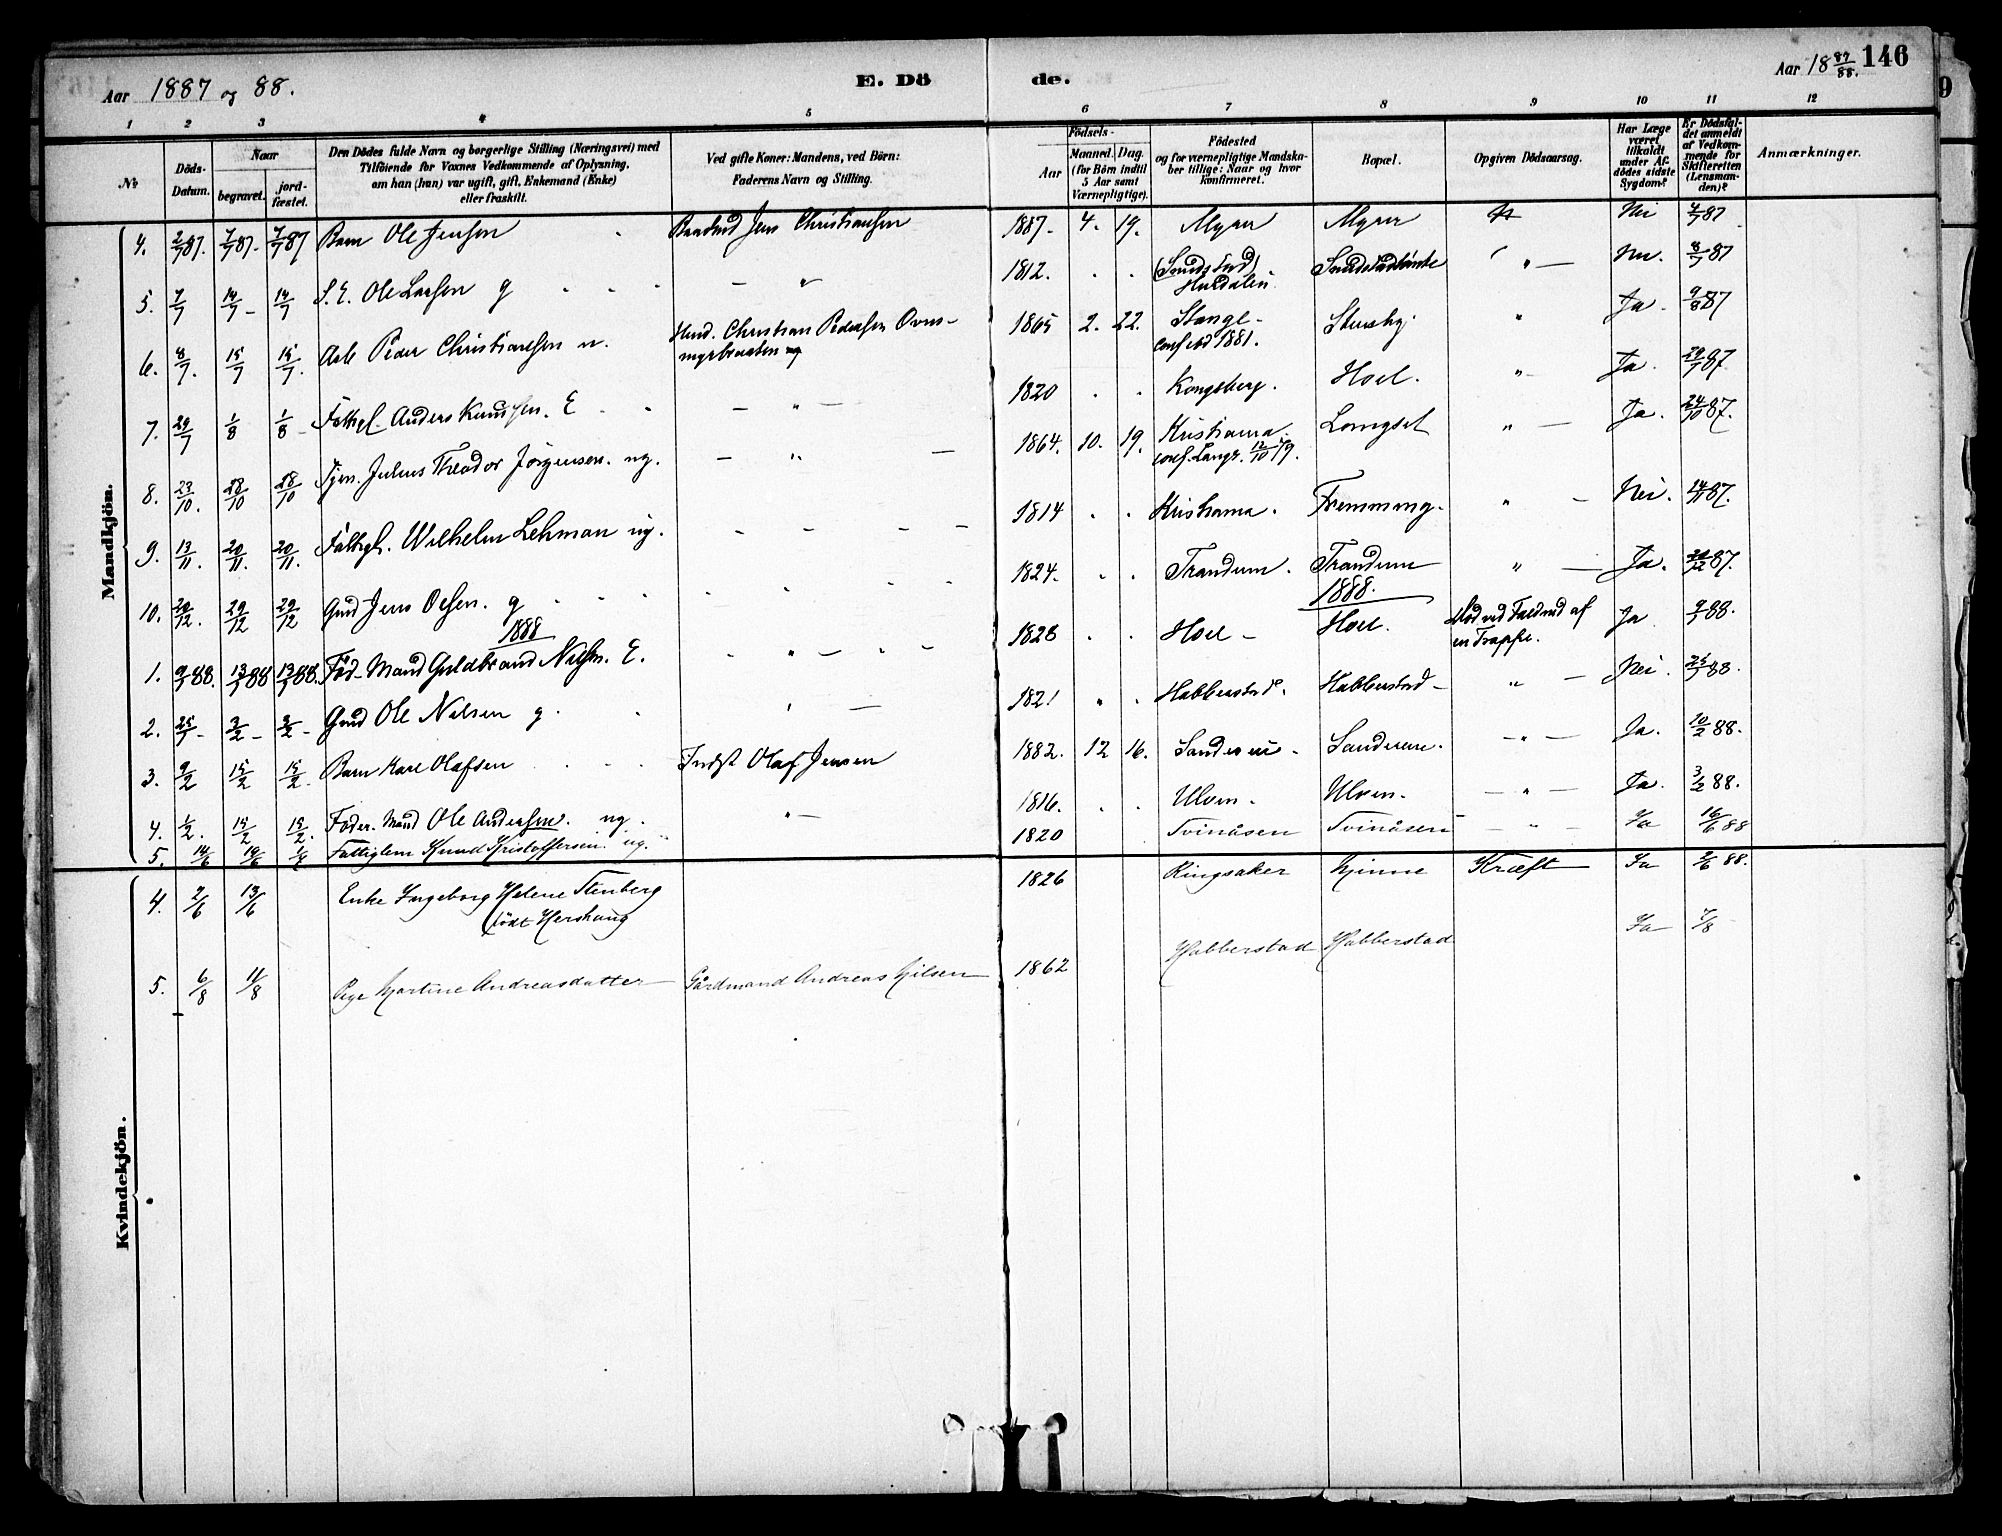 Aar 1887 og 88.
E. Dö
de.
Aar 18 87/88. 146
1 2 3 4 5 6 7 8 9 10 11 12
№
Döds-Datum.
Naar
begravet.
jord-fæstet.
Den Dödes fulde Navn og borgerlige Stilling (Næringsvei) med
Tilföiende for Voxnes Vedkommende af Oplysning,
om han (hun) var ugift, gift, Enkemand (Enke)
eller fraskilt.
Ved gifte Koner: Mandens, ved Börn:
Faderens Navn og Stilling.
Födsels-
Aar
Maaned. Dag.
(for Börn indtil
5 Aar samt
Værnepligtige).
Födested
og for værnepligtige Mandska-
ber tillige: Naar og hvor
konfirmeret.
Bopæl.
Opgiven Dödsaarsag.
Har Læge
været
tilkaldt
under Af-
dödes sidste
Sygdom?
Er Dödsfal-
det anmeldt
af Vedkom-
mende for
Skifteretten
(Lensman-
den)?
Anmærkninger.
Mandkjön.
4. 2/7 87. 7/7 87. 7/7 87 Barn Ole Jensen Jens Christiansen 1887. 4. 19. Myrer Myrer Nei 4/7 87
5. 7/7 14/7 14/7 Ole Larsen g 1812. Hurdalen " — Nei. 8/7 87
6. 8/7. 15/7 15/7. Peder Christiansen u. Christian Pedersen 1865 2. 22. Stange 1881. Stensby. " Ja. 9/8 87
7. 29/7 1/8 1/8 Fattigl. Anders Knudsen. E — " — 1820 Kongsberg. Hoel. " — Ja. 29/7 87
8. 23/10. 28/10 28/10 Tjen. Julius Theodor Jörgensen. ug. — " — 1864. 10. 19. Kristiania conf. Langs. 12/10 79. Langset " — Ja. 24/10 87.
9. 13/11. 20/11. 20/11. Fattigl. Wilhelm Lehman ug. — — — 1814 Kristiania. " — Nei. 14/11 87.
10. 20/12. 29/12 29/12 Gmd Jens Olsen. g 1824. Trandum. Trandum " — Ja. 87.
1888
1888.
1. 9/1 88. 13/1 88 13/1 88. Föd. Mand Guldbrand Nilsen. E. 1828 Hoel Hoel. Död ved Fald ned af en Trappe. Ja 9/1 88.
2. 25/1 3/2 3/2 Gmd Ole Nilsen g. 1821 Habberstad. Habberstad " — Nei. 25/1 88.
3. 9/2 15/2 15/2. Barn Karl Olafsen Indst Olaf Jensen 1882. 12 16. Sanderen Sanderen. — " — Ja. 10/2 88.
4. 1/2. 15/2 15/2. Föder. Mand Ole Andersen. ug. " — 1816. Ulven. Ulven. — " — Ja. 3/2 88.
5. 14/6 19/6 Fattiglem Knud Kristoffersen. ug. 1820 Svinåsen Svinåsen — " — Ja 16/6 88
Kvindekjön.
4. 2/6 13/6 Enke Ingeborg Helene Stenberg 1826 Ringsaker Minne Kræft Ja 2/6 88.
(födt Hershaug
5. 6/8 11/8 Pige Martine Andreasdatter Gårdmand Andreas Nilsen 1862 Habberstad Habberstad Ja 7/8